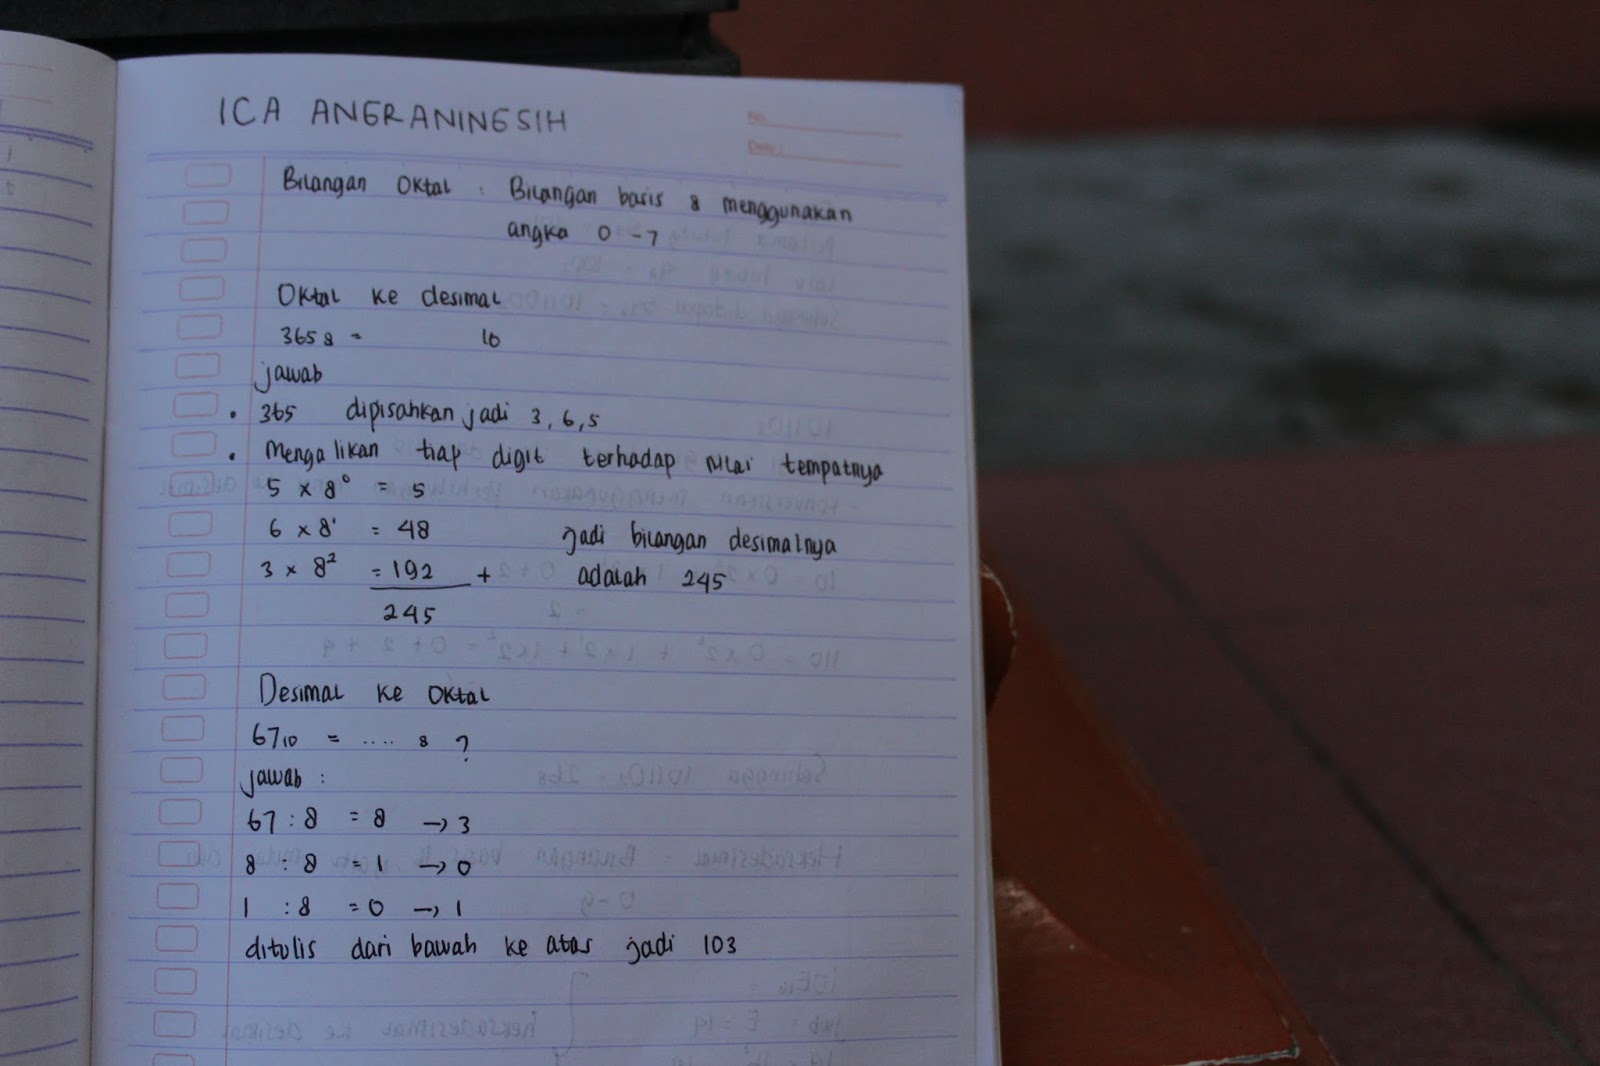 ICA ANGRANINGSIH
No.
Date :
Bilangan Oktal : Bilangan basis 8 menggunakan
angka 0 - 7
Oktal ke desimal
365 8 = 10
jawab
• 365 dipisahkan jadi 3, 6, 5
• Mengalikan tiap digit terhadap nilai tempatnya
5 × 8⁰ = 5
6 × 8¹ = 48 jadi bilangan desimalnya
3 × 8² = 192 + adalah 245
245
Desimal ke Oktal
67₁₀ = .... 8 ?
jawab :
67 : 8 = 8 → 3
8 : 8 = 1 → 0
1 : 8 = 0 → 1
ditulis dari bawah ke atas jadi 103